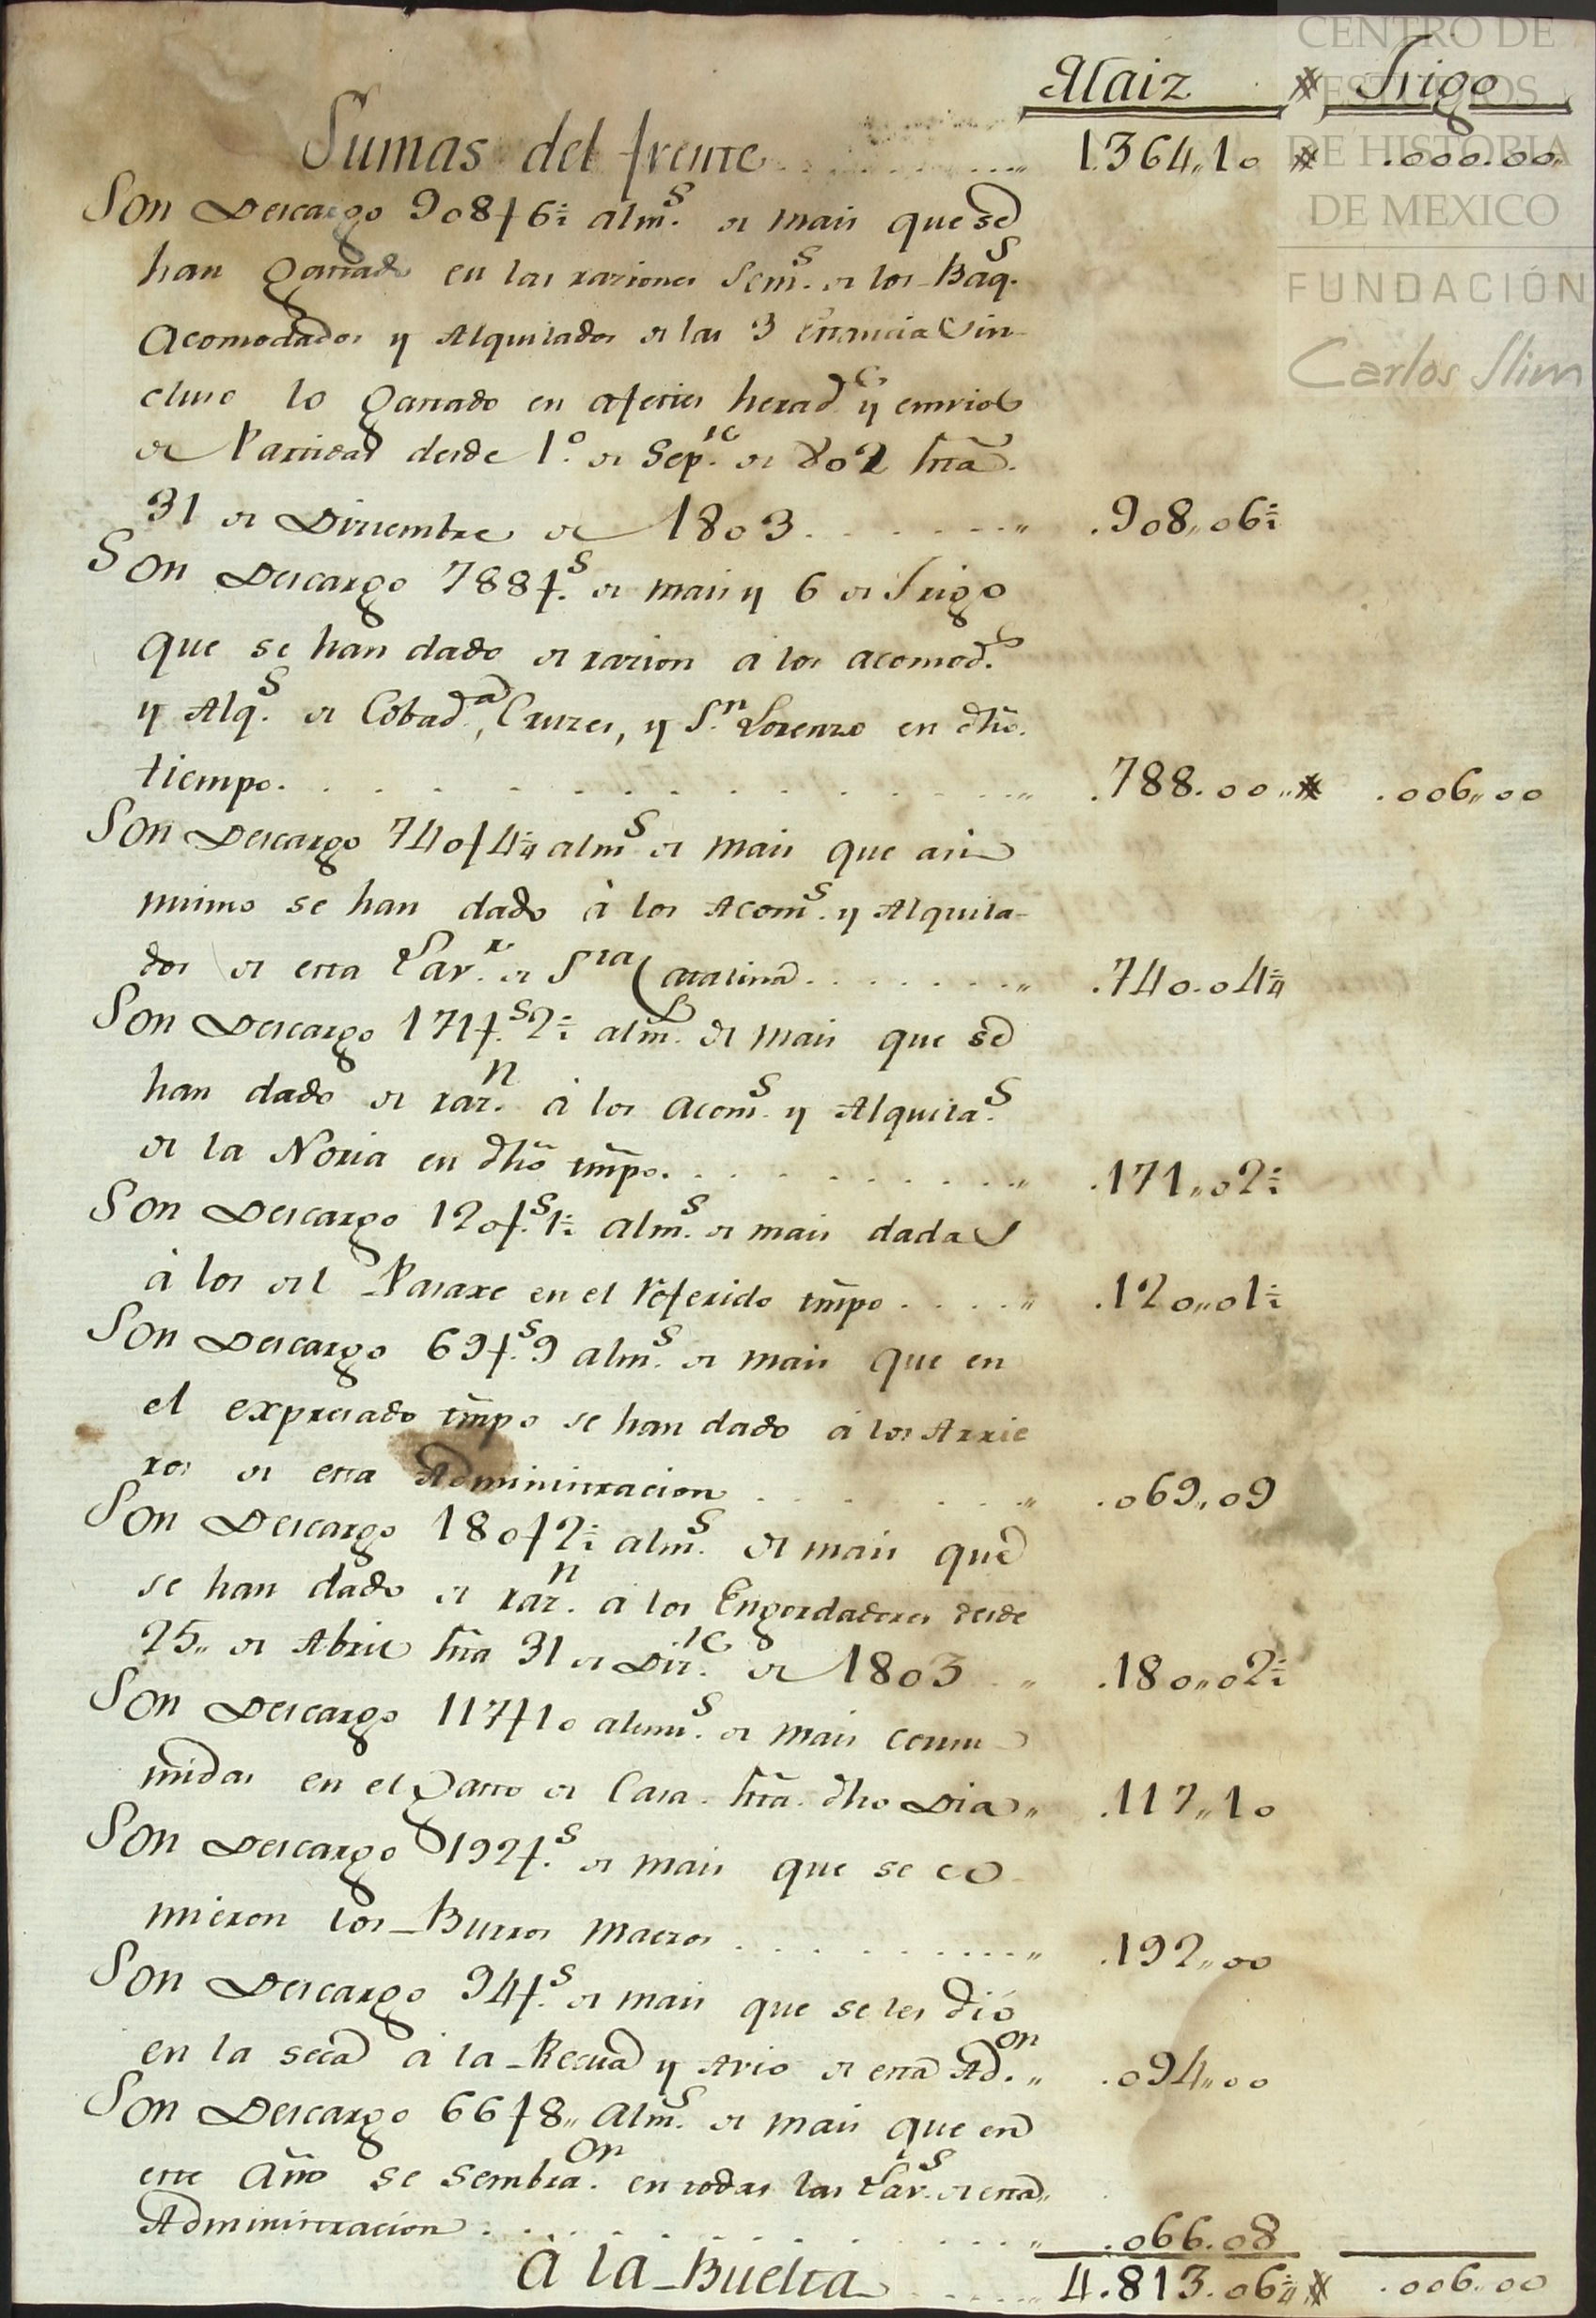 CENTRO DE
ESTUDIOS
DE HISTORIA
DE MEXICO
FUNDACIÓN
Carlos Slim
Maiz Trigo
Sumas del frente 1.364,,10 .000.00,,
Son Descargo 908f 6 alms. de mais que se
han gastado en las raziones Sems. de los Baqs.
Acomodados y Alquilados de las 3 Estancias in-
cluso lo gastado en herads. y envios
de Partidas desde 1º. de Sepre. de 802 hta.
31 de Diziembre de 1803 .908,,06
Son Descargo 788fs. de mais y 6 de Trigo
que se han dado de razion a los acomods.
y Alqs. de Cobada, Cruzes, y Sn. Lorenzo en dho.
tiempo. .788.00,, .006,,00
Son Descargo 740f 4 alms de mais que asi
mismo se han dado à los Acoms. y Alquila-
dos de esta Lavr. de Sta Catalina .740.04
Son Descargo 171fs. 2 alms. de mais que se
han dado de razn. à los Acoms. y Alquilas.
de la Noria en dho tmpo. .171,,02
Son Descargo 120fs. 1 alms. de mais dadas
à los del Pasaxe en el referido tmpo .120,,01
Son Descargo 69fs. 9 alms. de mais que en
el expresado tmpo se han dado à los Arrie
ros de esta Administracion .069,09
Son Descargo 180f 2 alms. de mais que
se han dado de razn. a los Engordadores desde
25,, de Abril hta 31 de Dize. de 1803 .180,,02
Son Descargo 117f 10 almus. de mais consu
midas en el Gasto de Casa hta. dho Dia,, .117,,10
Son Descargo 192fs. de mais que se co
mieron los Burros Maeros .192,,00
Son Descargo 94fs. de mais que se les dió
en la seca à la Recua y Avio de esta Adon.,, .094,,00
Son Descargo 66f 8,, Alms. de mais que en
este Año se sembraon. en todas las Lavs. de esta,,
Administracion .066.08
A la Buelta 4.813.06 .006,,00